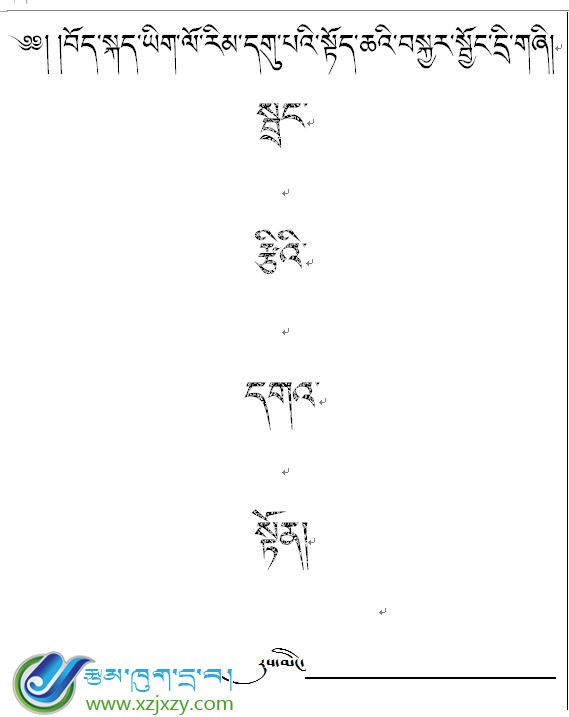 ༄༅། །བོད་སྐད་ཡིག་ལོ་རིམ་དགུ་པའི་སྟོད་ཆའི་བསྐྱར་སྦྱོང་དྲི་གཞི།
སྦྲང་
རྩིའི་
དགའ་
སྟོན།
རྩམ་ཁུག་དྲ་བ།
www.xzjxzy.com